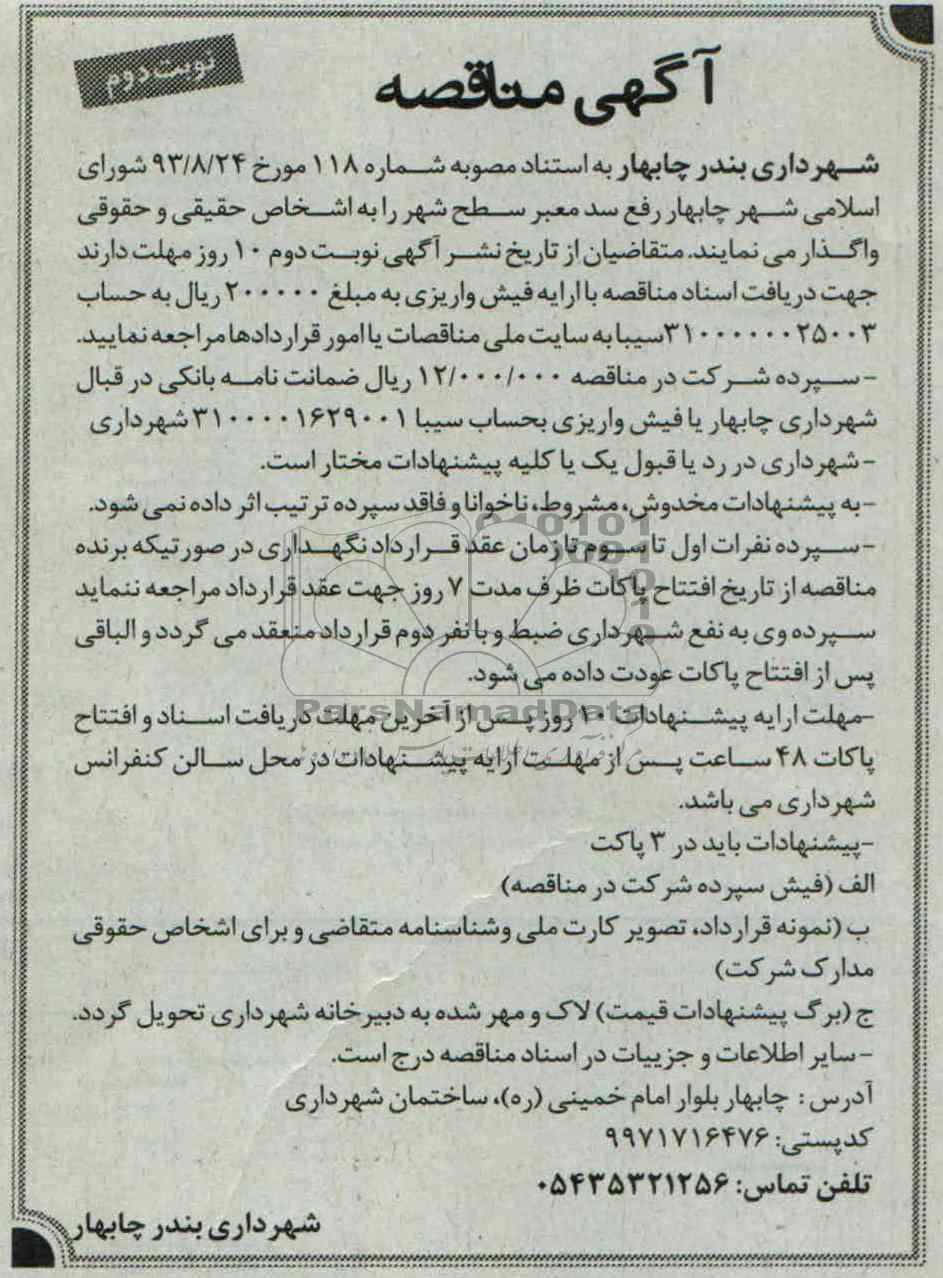 نوبت دوم
آگهی مناقصه
شهرداری بندر چابهار به استناد مصوبه شماره ۱۱۸ مورخ ۹۳/۸/۲۴ شورای
اسلامی شهر چابهار رفع سد معبر سطح شهر را به اشخاص حقیقی و حقوقی
واگذار می نمایند. متقاضیان از تاریخ نشر آگهی نوبت دوم ۱۰ روز مهلت دارند
جهت دریافت اسناد مناقصه با ارایه فیش واریزی به مبلغ ۲۰۰۰۰۰ ریال به حساب
۳۱۰۰۰۰۰۰۲۵۰۰۳سیبا به سایت ملی مناقصات یا امور قراردادها مراجعه نمایید.
-سپرده شرکت در مناقصه ۱۲/۰۰۰/۰۰۰ ریال ضمانت نامه بانکی در قبال
شهرداری چابهار یا فیش واریزی بحساب سیبا ۳۱۰۰۰۰۱۶۲۹۰۰۱ شهرداری
-شهرداری در رد یا قبول یک یا کلیه پیشنهادات مختار است.
-به پیشنهادات مخدوش، مشروط، ناخوانا و فاقد سپرده ترتیب اثر داده نمی شود.
-سپرده نفرات اول تا سوم تا زمان عقد قرارداد نگهداری در صورتیکه برنده
مناقصه از تاریخ افتتاح پاکات ظرف مدت ۷ روز جهت عقد قرارداد مراجعه ننماید
سپرده وی به نفع شهرداری ضبط و با نفر دوم قرارداد منعقد می گردد و الباقی
پس از افتتاح پاکات عودت داده می شود.
ParsNamadData
-مهلت ارایه پیشنهادات ۱۰ روز پس از آخرین مهلت دریافت اسناد و افتتاح
پاکات ۴۸ ساعت پس از مهلت ارایه پیشنهادات در محل سالن کنفرانس
شهرداری می باشد.
-پیشنهادات باید در ۳ پاکت
الف (فیش سپرده شرکت در مناقصه)
ب (نمونه قرارداد، تصویر کارت ملی وشناسنامه متقاضی و برای اشخاص حقوقی
مدارک شرکت)
ج (برگ پیشنهادات قیمت) لاک و مهر شده به دبیرخانه شهرداری تحویل گردد.
-سایر اطلاعات و جزییات در اسناد مناقصه درج است.
آدرس: چابهار بلوار امام خمینی (ره)، ساختمان شهرداری
کدپستی: ۹۹۷۱۷۱۶۴۷۶
تلفن تماس: ۰۵۴۳۵۳۲۱۲۵۶
شهرداری بندر چابهار